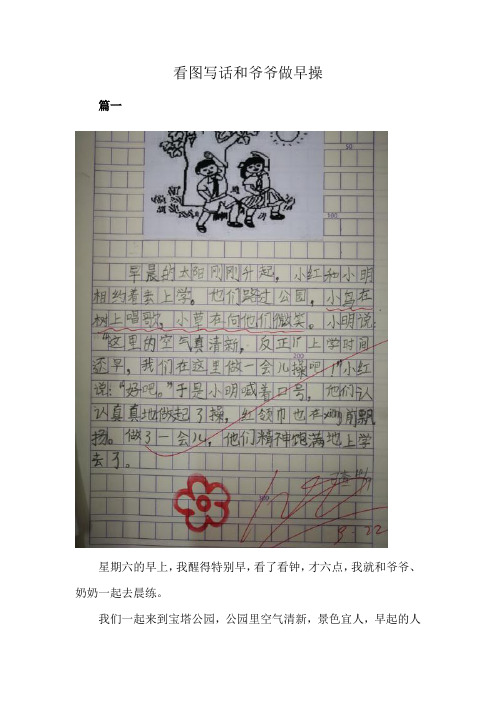 看图写话和爷爷做早操
篇一
50
100
早晨的太阳刚刚升起，小红和小明
相约着去上学。他们路过公园，小鸟在
树上唱歌，小草在向他们微笑。小明说：
“这里的空气真清新，反正上学时间
200
还早，我们在这里做一会儿操吧！”小红
说：“好吧。”于是小明喊着口号，他们认
认真真地做起了操，红领巾也在胸前飘
扬。做了一会儿，他们精神饱满地上学
去了。
300
8.22
星期六的早上，我醒得特别早，看了看钟，才六点，我就和爷爷、
奶奶一起去晨练。
我们一起来到宝塔公园，公园里空气清新，景色宜人，早起的人